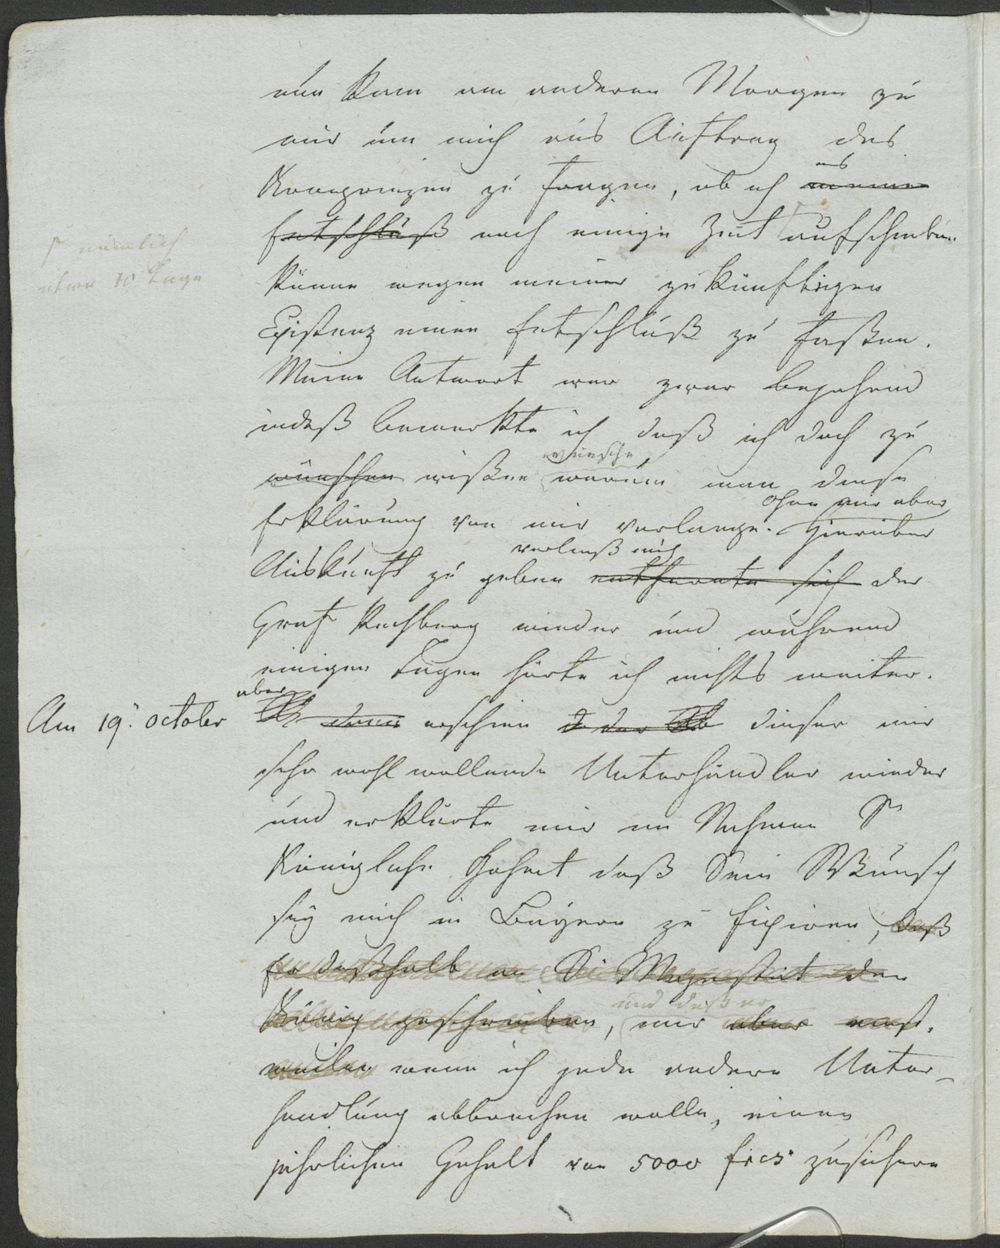 nun kam am anderen Morgen zu
mir um mich aus Auftrag des
Kronprinzen zu fragen, ob ich meinen
es
Entschluß noch einige Zeit aufschieben
Γ nämlich
etwa 10 Tage
könne wegen meiner zukünftigen
Existenz einen Entschluß zu fassen.
Meine Antwort war zwar bejahend
indeß bemerkte ich daß ich doch zu
wünsche
wünschen wißen warum man diese
ohne mir aber
Erklärung von mir verlange. Hierüber
verließ mich
Auskunft zu geben entfernte sich der
Graf Rechberg wieder und während
einigen Tagen hörte ich nichts weiter.
Am 19. October
aber
dann erschien dieser mir
sehr wohl wollende Unterhändler wieder
und erklärte mir im Nahmen Sr
Königlichen Hoheit daß Sein Wunsch
sey mich in Bayern zu fixiren, daß
Er deßhalb an Se Majestät den
und daß er
König geschrieben, mir aber einst-
weilen wenn ich jede andere Unter-
handlung abbrechen wolle, einen
jährlichen Gehalt von 5000 frcs zusichere